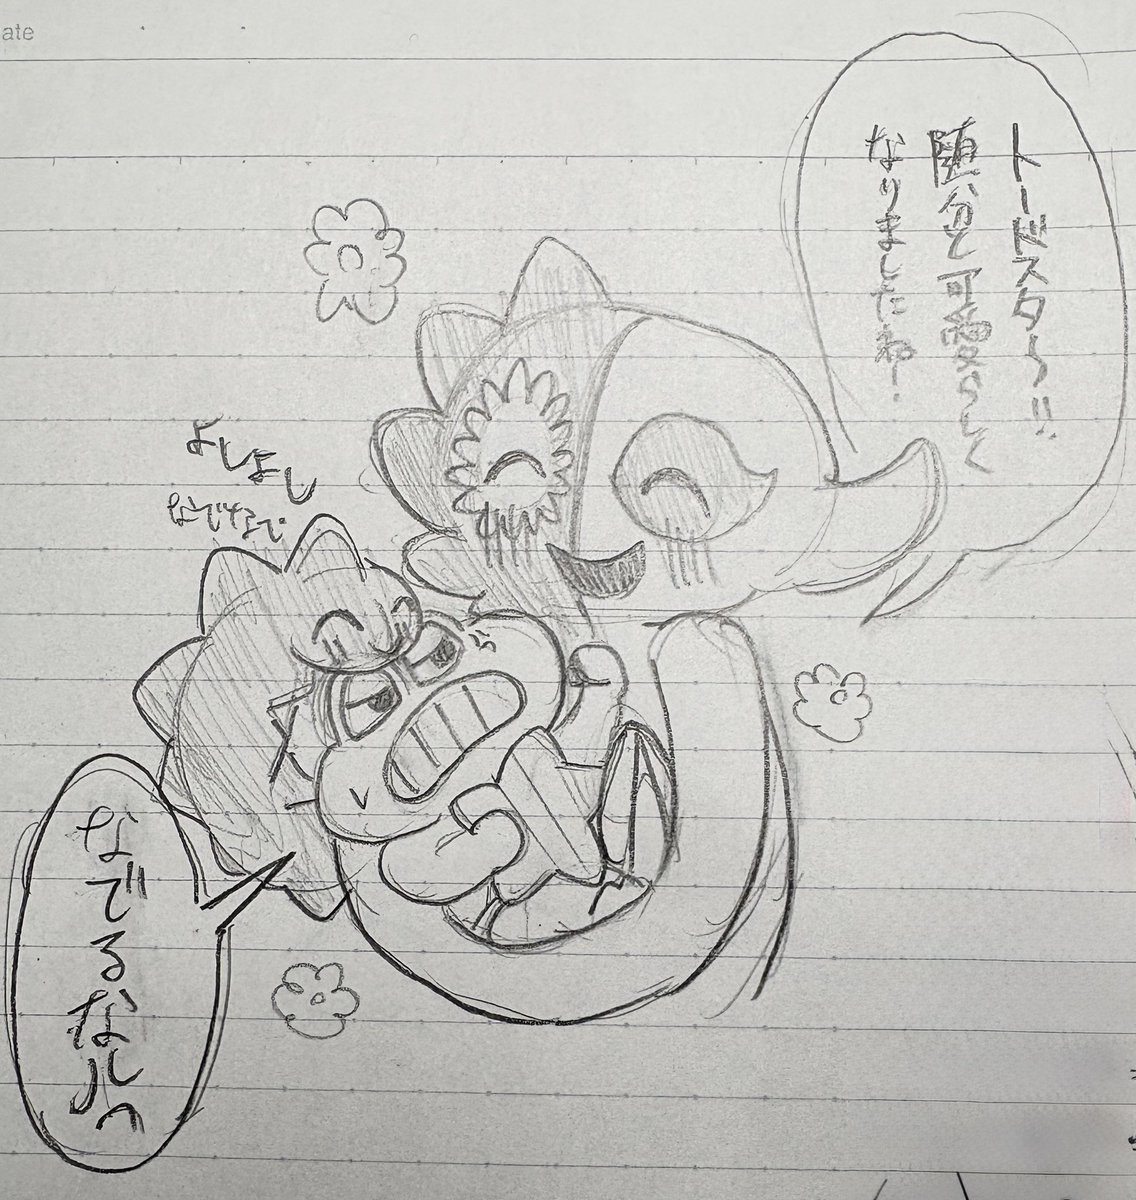 トードスター!!
随分と可愛らしく
なりましたねー
よしよし
なでなで
なでるなしっ
ate